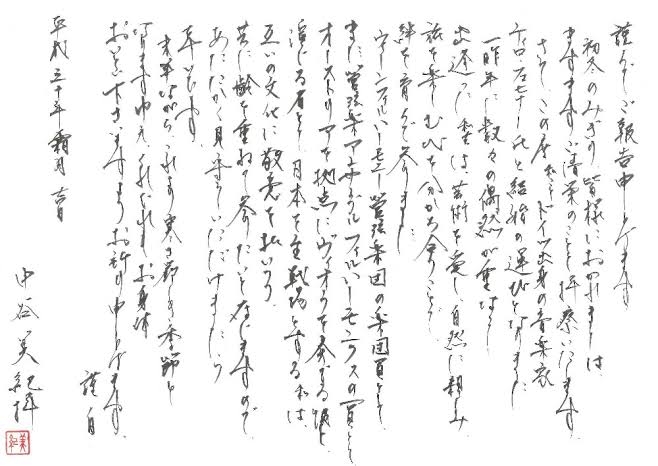 謹んでご報告申し上げます
初冬のみぎり 皆様におかれましては
ますますご清栄のことと拝察いたします。
さて、この度 私ことドイツ出身の音楽家
ティロ・フェヒナー氏と結婚の運びとなりました
一昨年に数々の偶然が重なり
出逢った は、芸術を愛し、自然に親しみ
旅を楽しむ を分かち合うことで
絆を育んで参りました。
ウィーンフィルハーモニー管弦楽団の楽団員として
また管弦楽アンサンブル フィルハーモニクスの一員として
オーストリアを拠点にヴィオラを奏でる彼と
演じる者として日本を主戦場とする私は、
互いの文化に敬意を払いつつ
共に齢を重ねて参りたいと存じますので、
あたたかく見守っていただけましたら
幸いです。
末筆ながら これより寒さ厳しき季節と
なりますゆえ くれぐれもお身体
おいといくださいますようお祈り申し上げます。
謹白
平成三十年霜月 吉日
中谷美紀拝
美紀